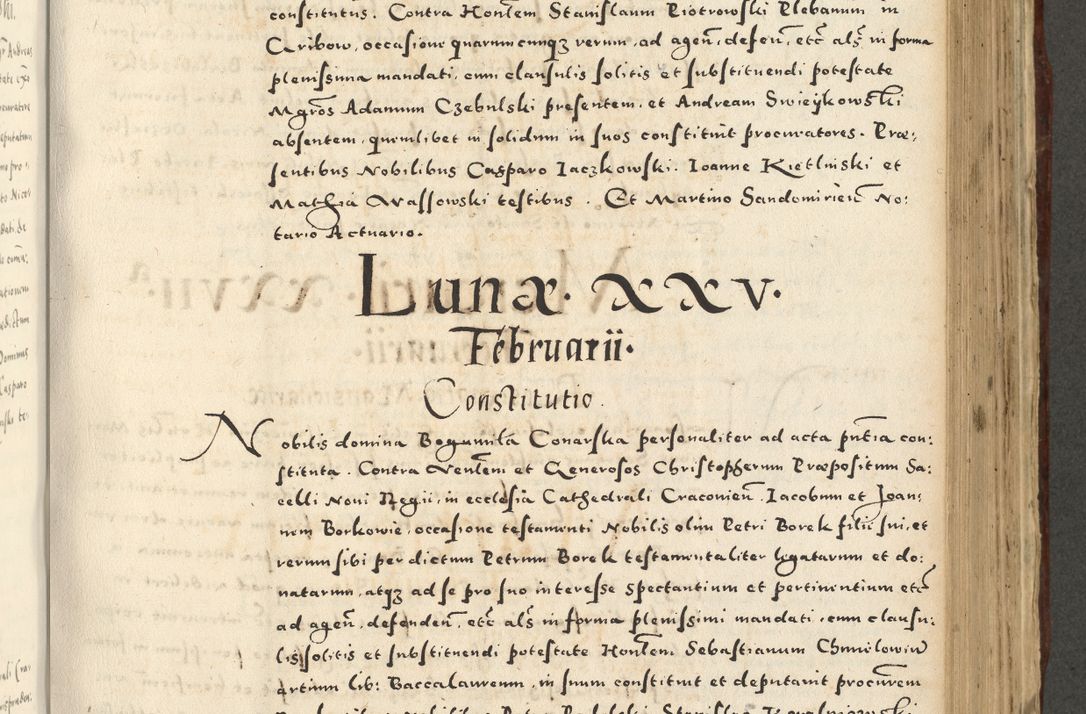 constitutus. Contra Honlem Stanislaum Piotrowski Plebanum in
Gribow, occasione quarumcunqz rerum, ad agen, defen, etc als in forma
plenissima mandati, cum clausulis solitis et substituendi potestate
Mgros Adamum Czebulski presentem, et Andream Swieykowski
absentem, quemlibet in solidum in suos constituit procuratores. Præ:
sentibus Nobilibus Casparo Iaczkowski. Ioanne Kietlinski et
Mathia Wassowski testibus. Et Martino Sandomirien No:
tario Actuario.
Lunæ. XXV.
Februarii.
Constitutio.
Nobilis domina Bogumila Conarska personaliter ad acta pntia con:
stituta. Contra Venlem et Generosos Christopherum Præpositum Sa:
celli Noui Regii, in ecclesia Cathedrali Cracouien. Iacobum et Joan:
nem Borkowie, occasione testamenti Nobilis olim Petri Borek filii sui, et
rerum sibi per dictum Petrum Borek testamentaliter legatarum et do:
natarum, atqz ad se pro suo interesse spectantium et pertinentium etc
ad agen, defenden, etc als in forma plenissimi mandati, cum clausu:
lis solitis et substituendi potestate Honlem Sebastianum Chmilowiu
artium lib: Baccalaureum, in suum constituit et deputauit procurem